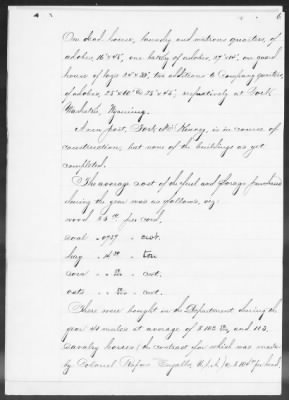 6
One dead house, laundry and matrons quarters, of
adobes, 16 x 45, one bakery of adobes, 27 x 20, one guard
house of logs 24 x 30, two additions to Company quarters,
of adobes, 25 x 40 & 25 x 45, respectively at Fort
Washakie, Wyoming.
A new post, Fort McKinney, is in course of
construction, but none of the buildings as yet
completed.
The average cost of the fuel and forage purchased
during the year was as follows, viz:
wood per cord.
coal cwt.
hay " ton
corn " cwt.
oats " cwt.
There were bought in the Department during the
year 41 mules at average of $ and 113
Cavalry horses (the contract for which was made
by Colonel Rufus Ingalls, U.S.A.) per head.